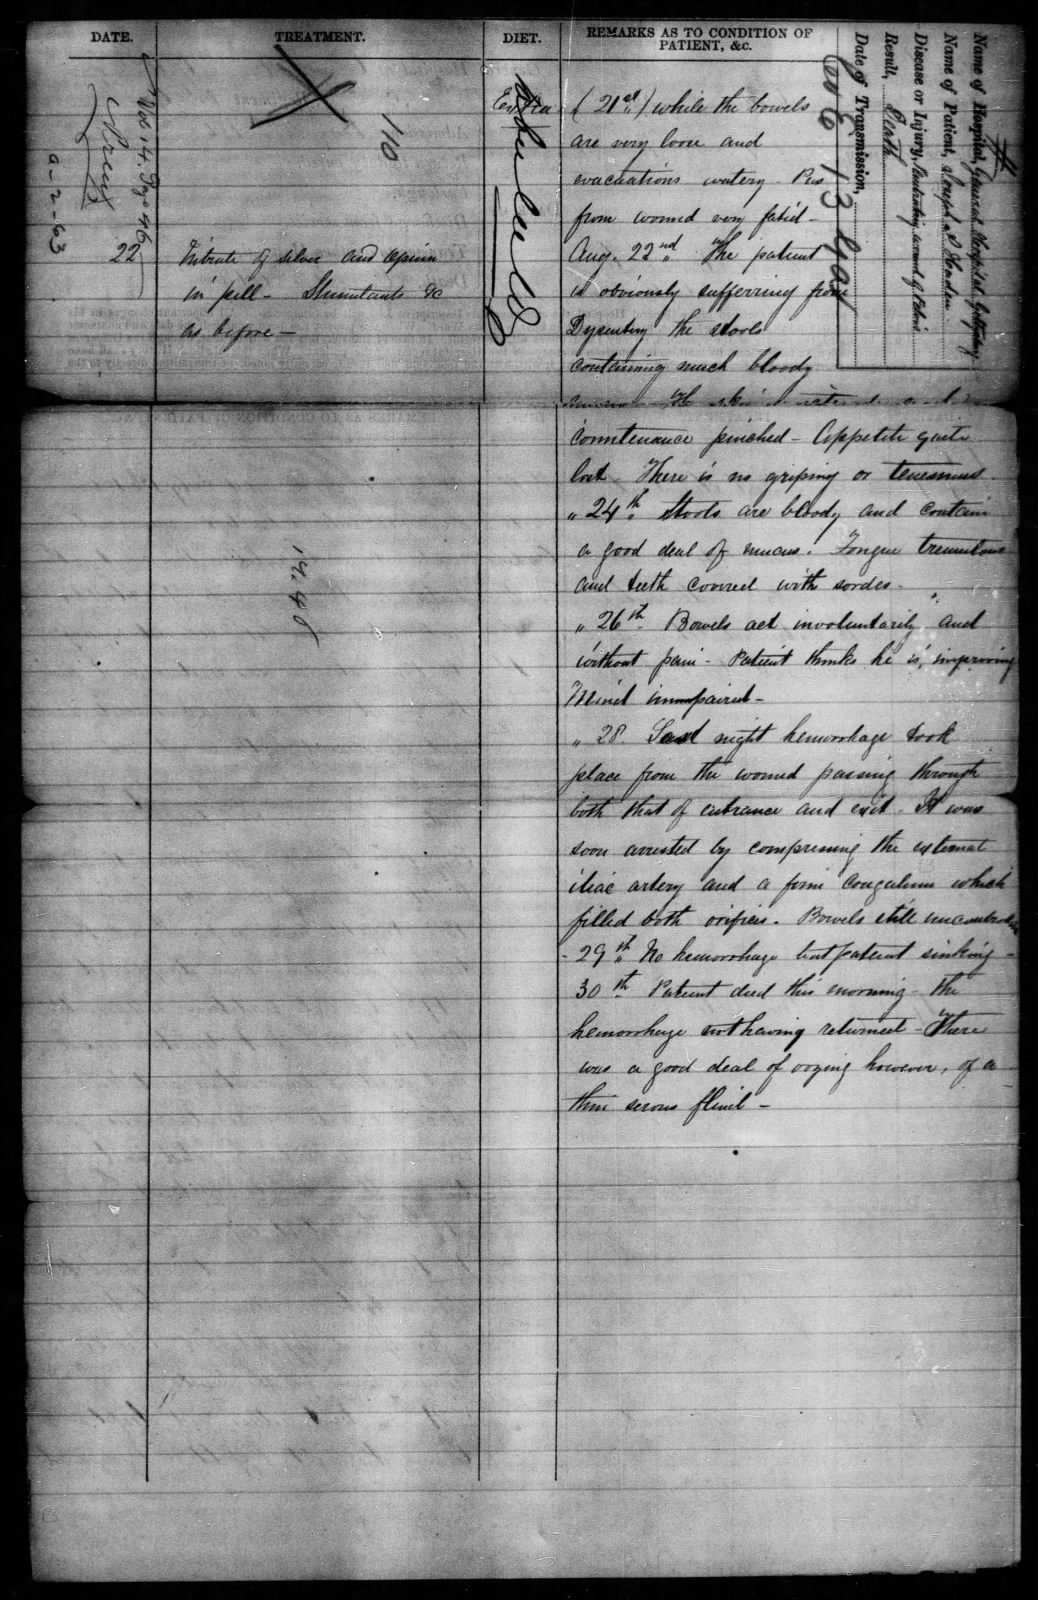 DATE.
TREATMENT.
DIET.
REMARKS AS TO CONDITION OF
PATIENT, &C.
Name of Hospital, General Hospital Gettysburg
Name of Patient, Joseph
Disease or Injury, Penetrating wound of Pelvis.
Result, Death
Date of Transmission,
110
a-2-63
22
Nitrate of silver and opium
in pill - Stimulants &c
as before -
Extra
(21st) while the bowels
are very loose and
evacuations watery - Pus
from wound very fetid -
Aug. 22nd The patient
is obviously suffering from
Dysentery the stools
containing much bloody
countenance pinched - Appetite quite
lost - There is no griping or tenesmus.
" 24th Stools are bloody and contain
a good deal of mucus. Tongue tremulous
and teeth covered with sordes -
" 26th Bowels act involuntarily and
without pain - Patient thinks he is improving
Mind impaired -
" 28. Last night hemorrhage took
place from the wound passing through
both that of entrance and exit - It was
soon arrested by compressing the external
iliac artery and a firm coagulum which
filled both orifices. Bowels still
- 29th No hemorrhage but patient sinking -
30th Patient died this morning - the
hemorrhage not having returned - There
was a good deal of oozing however, of a
thin serous fluid -